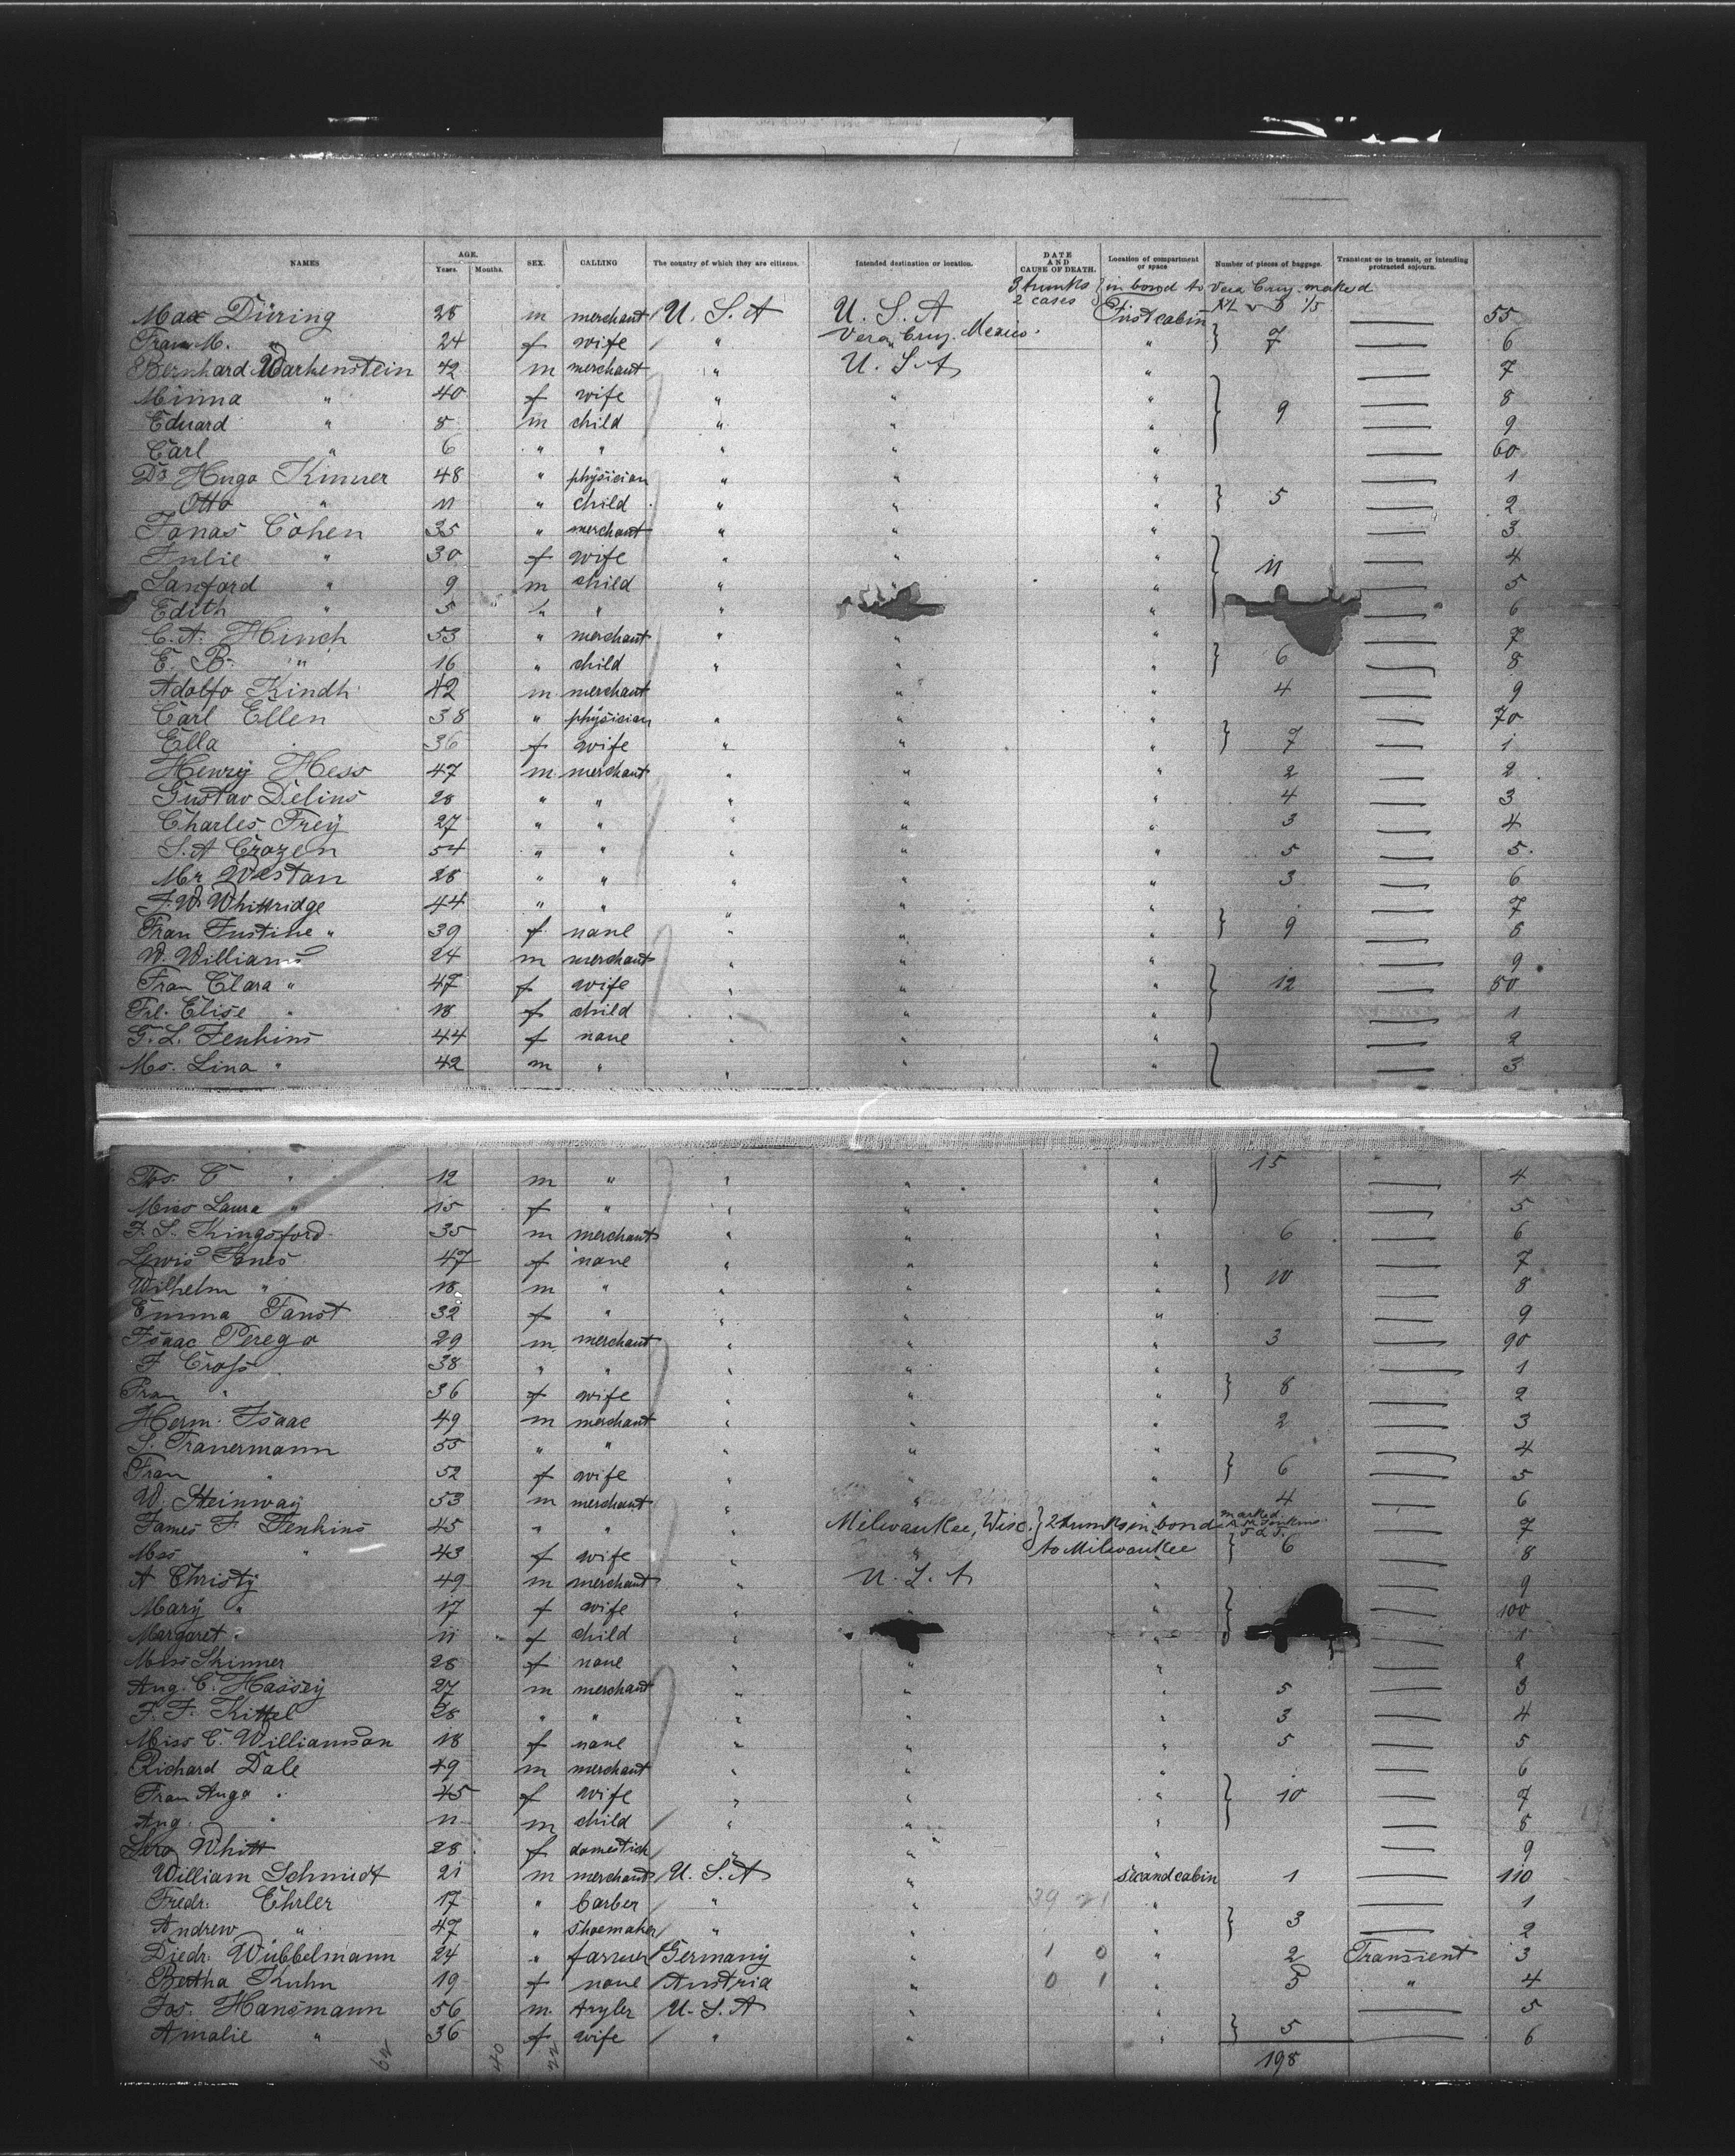 NAMES AGE. Years. Months. SEX. CALLING The country of which they are citizens. Intended destination or location. DATE AND CAUSE OF DEATH. Location of compartment or space Number of pieces of baggage. Transient or in transit, or intending protracted sojourn.
3 trunks } in bond to Vera Cruz marked
2 cases
Max Düring 28 m merchant U. S. A U. S. A First cabin 55
Frau M. " 24 f wife " Vera Cruz Mexico " } 7 6
Bernhard Warkenstein 42 m merchant " U. S. A " 7
Minna " 40 f wife " " " 8
Eduard " 8 m child " " " } 9 9
Carl " 6 " " " " " 60
Dr Hugo Kinner 48 " physician " " " 1
Otto " 11 " child " " " } 5 2
Jonas Cohen 35 " merchant " " " 3
Julie " 30 f wife " " " } 11 4
Sanford " 9 m child " " " 5
Edith " 5 " " " " 6
C. A. Hinch 53 " merchant " " " 7
E. B. " 16 " child " " " } 6 8
Adolfo Kindh 42 m merchant " 4 9
Carl Ellen 38 " physician " " " 70
Ella 36 f wife " " " } 7 1
Henry Hess 47 m merchant " " 2 2
Gustav Delius 28 " " " " " 4 3
Charles Frey 27 " " " " " 3 4
S. A Crozen 54 " " " " " 5 5
Mr Westan 28 " " " " " 3 6
F. W. Whittridge 44 " " " " " 7
Frau Justine " 39 f none " " " } 9 8
W. Williams 24 m merchant " " " 9
Frau Clara " 47 f wife " " " } 12 80
Frl. Elise " 18 f child " " " 1
G. L. Jenkins 44 f none " " " 2
Ms. Lina " 42 m " " " " 3
15
C " 12 m " " " " 4
Miss Laura " 15 f " " " " 5
F. S. Kingsford 35 m merchant " " " 6 6
Lewis Jones 47 f none " " " 7
Wilhelm " 18 m " " " " } 10 8
Emma Faust 32 f " " " " 9
Isaac Perego 29 m merchant " " " 3 90
F Cross 38 " " " " " 1
Frau " 36 f wife " " " } 8 2
Herm. Isaac 49 m merchant " " " 2 3
S. Trauermann 55 " " " " " 4
Frau " 52 f wife " " " } 6 5
W. Steinway 53 m merchant " " " 4 6
James F Jenkins 45 " " " Milwaukee, Wisc. } 2 trunks in bond marked 7
Mss " 43 f wife " " to Milwaukee } 6 8
A Christy 49 m merchant " U. S. A " 9
Mary " 17 f wife " " " 100
Margaret " 11 f child " " 1
Miss Skinner 28 f none " " " 2
Aug. C. Hassey 27 m merchant " " " 5 3
F. F. Kittel 28 " " " " " 3 4
Miss C. Williamson 18 f none " " " 5 5
Richard Dale 49 m merchant " " " 6
Frau Auga " 45 f wife " " " } 10 7
Aug. " 11 m child " " " 8
Whitt 28 f domestick " " " 9
William Schmidt 21 m merchant U. S. A " Second cabin 1 110
Fredr. Ehrler 17 " barber " " 39 21 " 1
Andrew " 47 " shoemaker " " " } 3 2
Diedr. Wübbelmann 24 " farmer Germany " 1 0 " 2 Transient 3
Bertha Kuhn 19 f none Austria " 0 1 " 5 " 4
Jos. Hansmann 56 m U. S. A " " 5
Amalie " 36 f wife " " " } 5 6
62 40 22 198